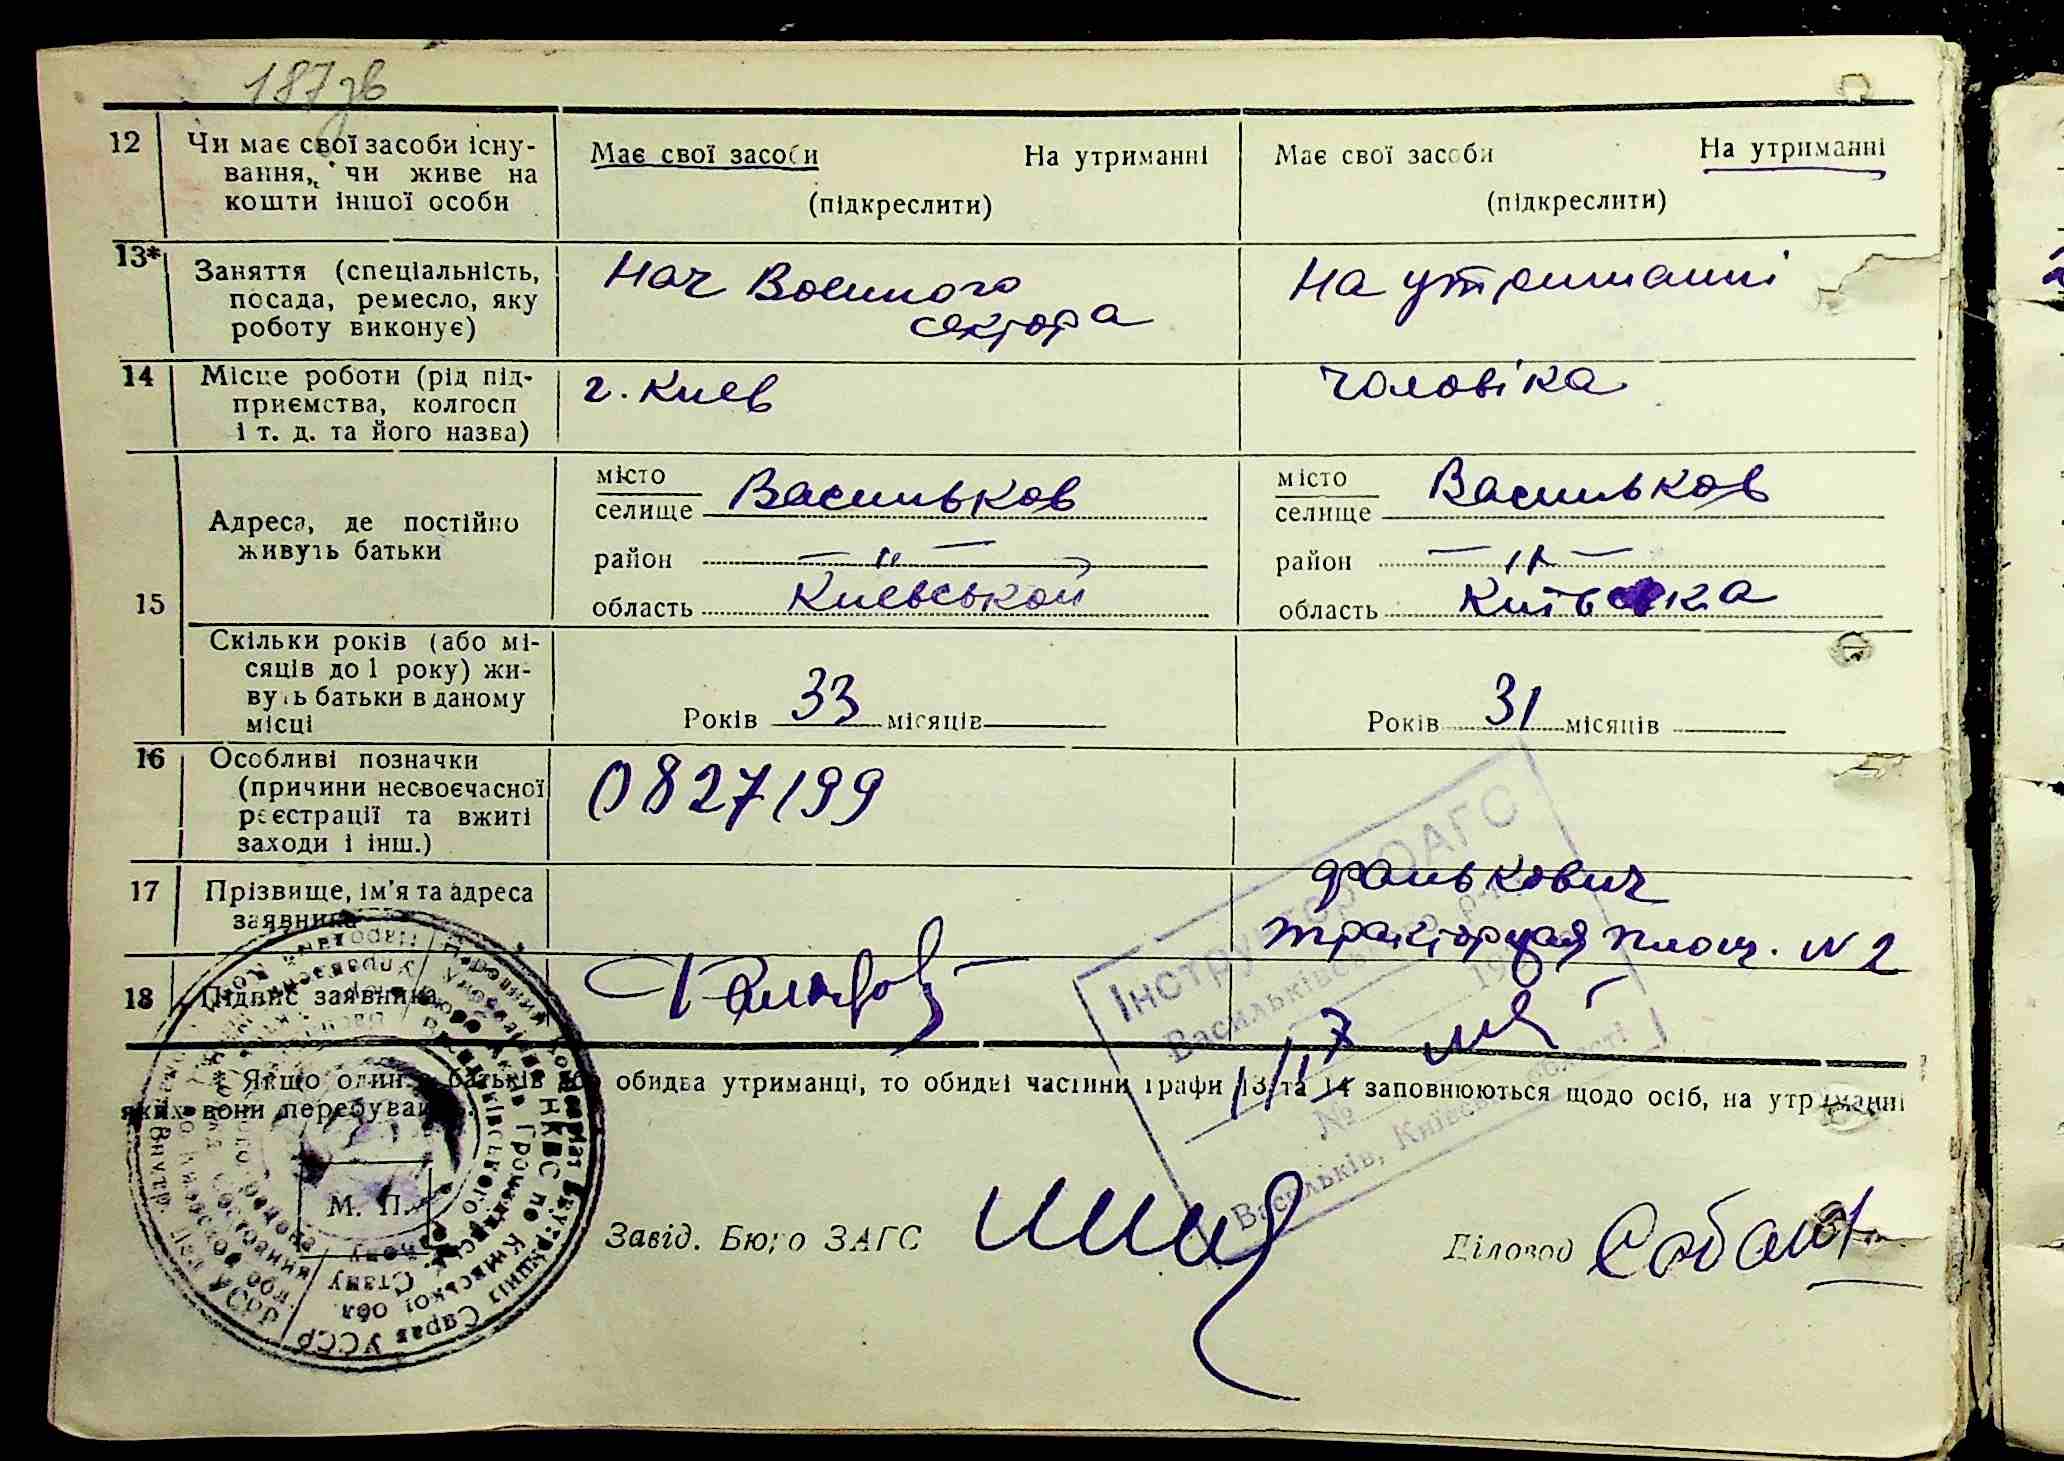 187 зв
12 Чи має свої засоби існу- Має свої засоби На утриманні Має свої засоби На утриманні
вання, чи живе на
кошти іншої особи (підкреслити) (підкреслити)
13* Заняття (спеціальність, Нач Военного На утриманні
посада, ремесло, яку сектора
роботу виконує)
14 Місце роботи (рід під- г. Киев чоловіка
приємства, колгосп
і т. д. та його назва)
15 Адреса, де постійно
живуть батьки
місто Васильков місто Васильков
селище селище
район — " — район — " —
область Киевськой область Київська
Скільки років (або мі-
сяців до 1 року) жи-
вуть батьки в даному
місці Років 33 місяців Років 31 місяців
16 Особливі позначки 0827199
(причини несвоєчасної
реєстрації та вжиті
заходи і інш.)
17 Прізвище, ім'я та адреса Фанькович
заявника Тракторная площ. N 2
18 Підпис заявника
* Якщо один з батьків або обидва утриманці, то обидві частини графи 13 та 14 заповнюються щодо осіб, на утриманні
яких вони перебувають.
Інструктор ОАГС
Васильківського
19
№
Васильків, Київської області
М. П. Завід. Бюро ЗАГС Діловод